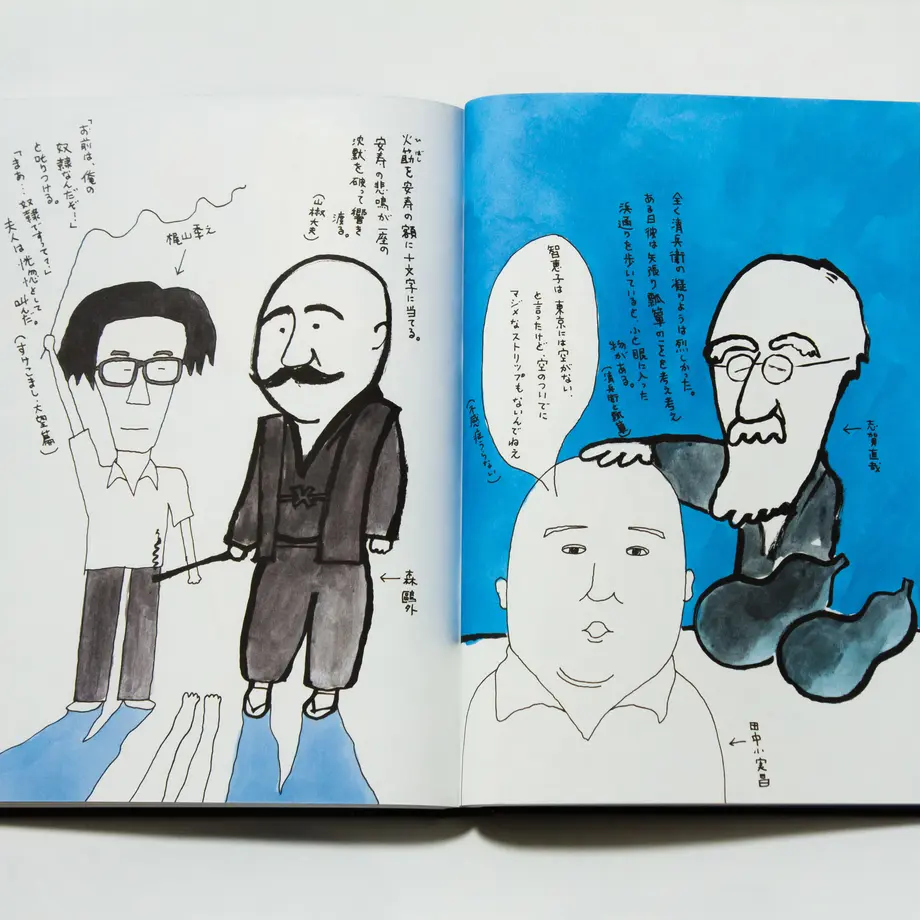 志賀直哉
全く清兵衛の凝りようは烈しかった。
ある日彼は矢張り瓢箪のことを考え考え
浜通りを歩いていると、ふと眼に入った
物がある。
(清兵衛と瓢箪)
田中小実昌
智恵子は東京には空がない、
と言ったけど、空のついでに
マジメなストリップもないんでねえ
(不感症うらない)
ひばし
火筯を安寿の額に十文字に当てる。
安寿の悲鳴が一座の
沈黙を破って響き
渡る。
(山椒大夫)
森鷗外
梶山季之
「お前は、俺の
奴隷なんだぞ!」
と叱りつける。
「まあ…奴隷ですって?」
夫人は恍惚として
叫んだ。
(すけこまし・大望篇)